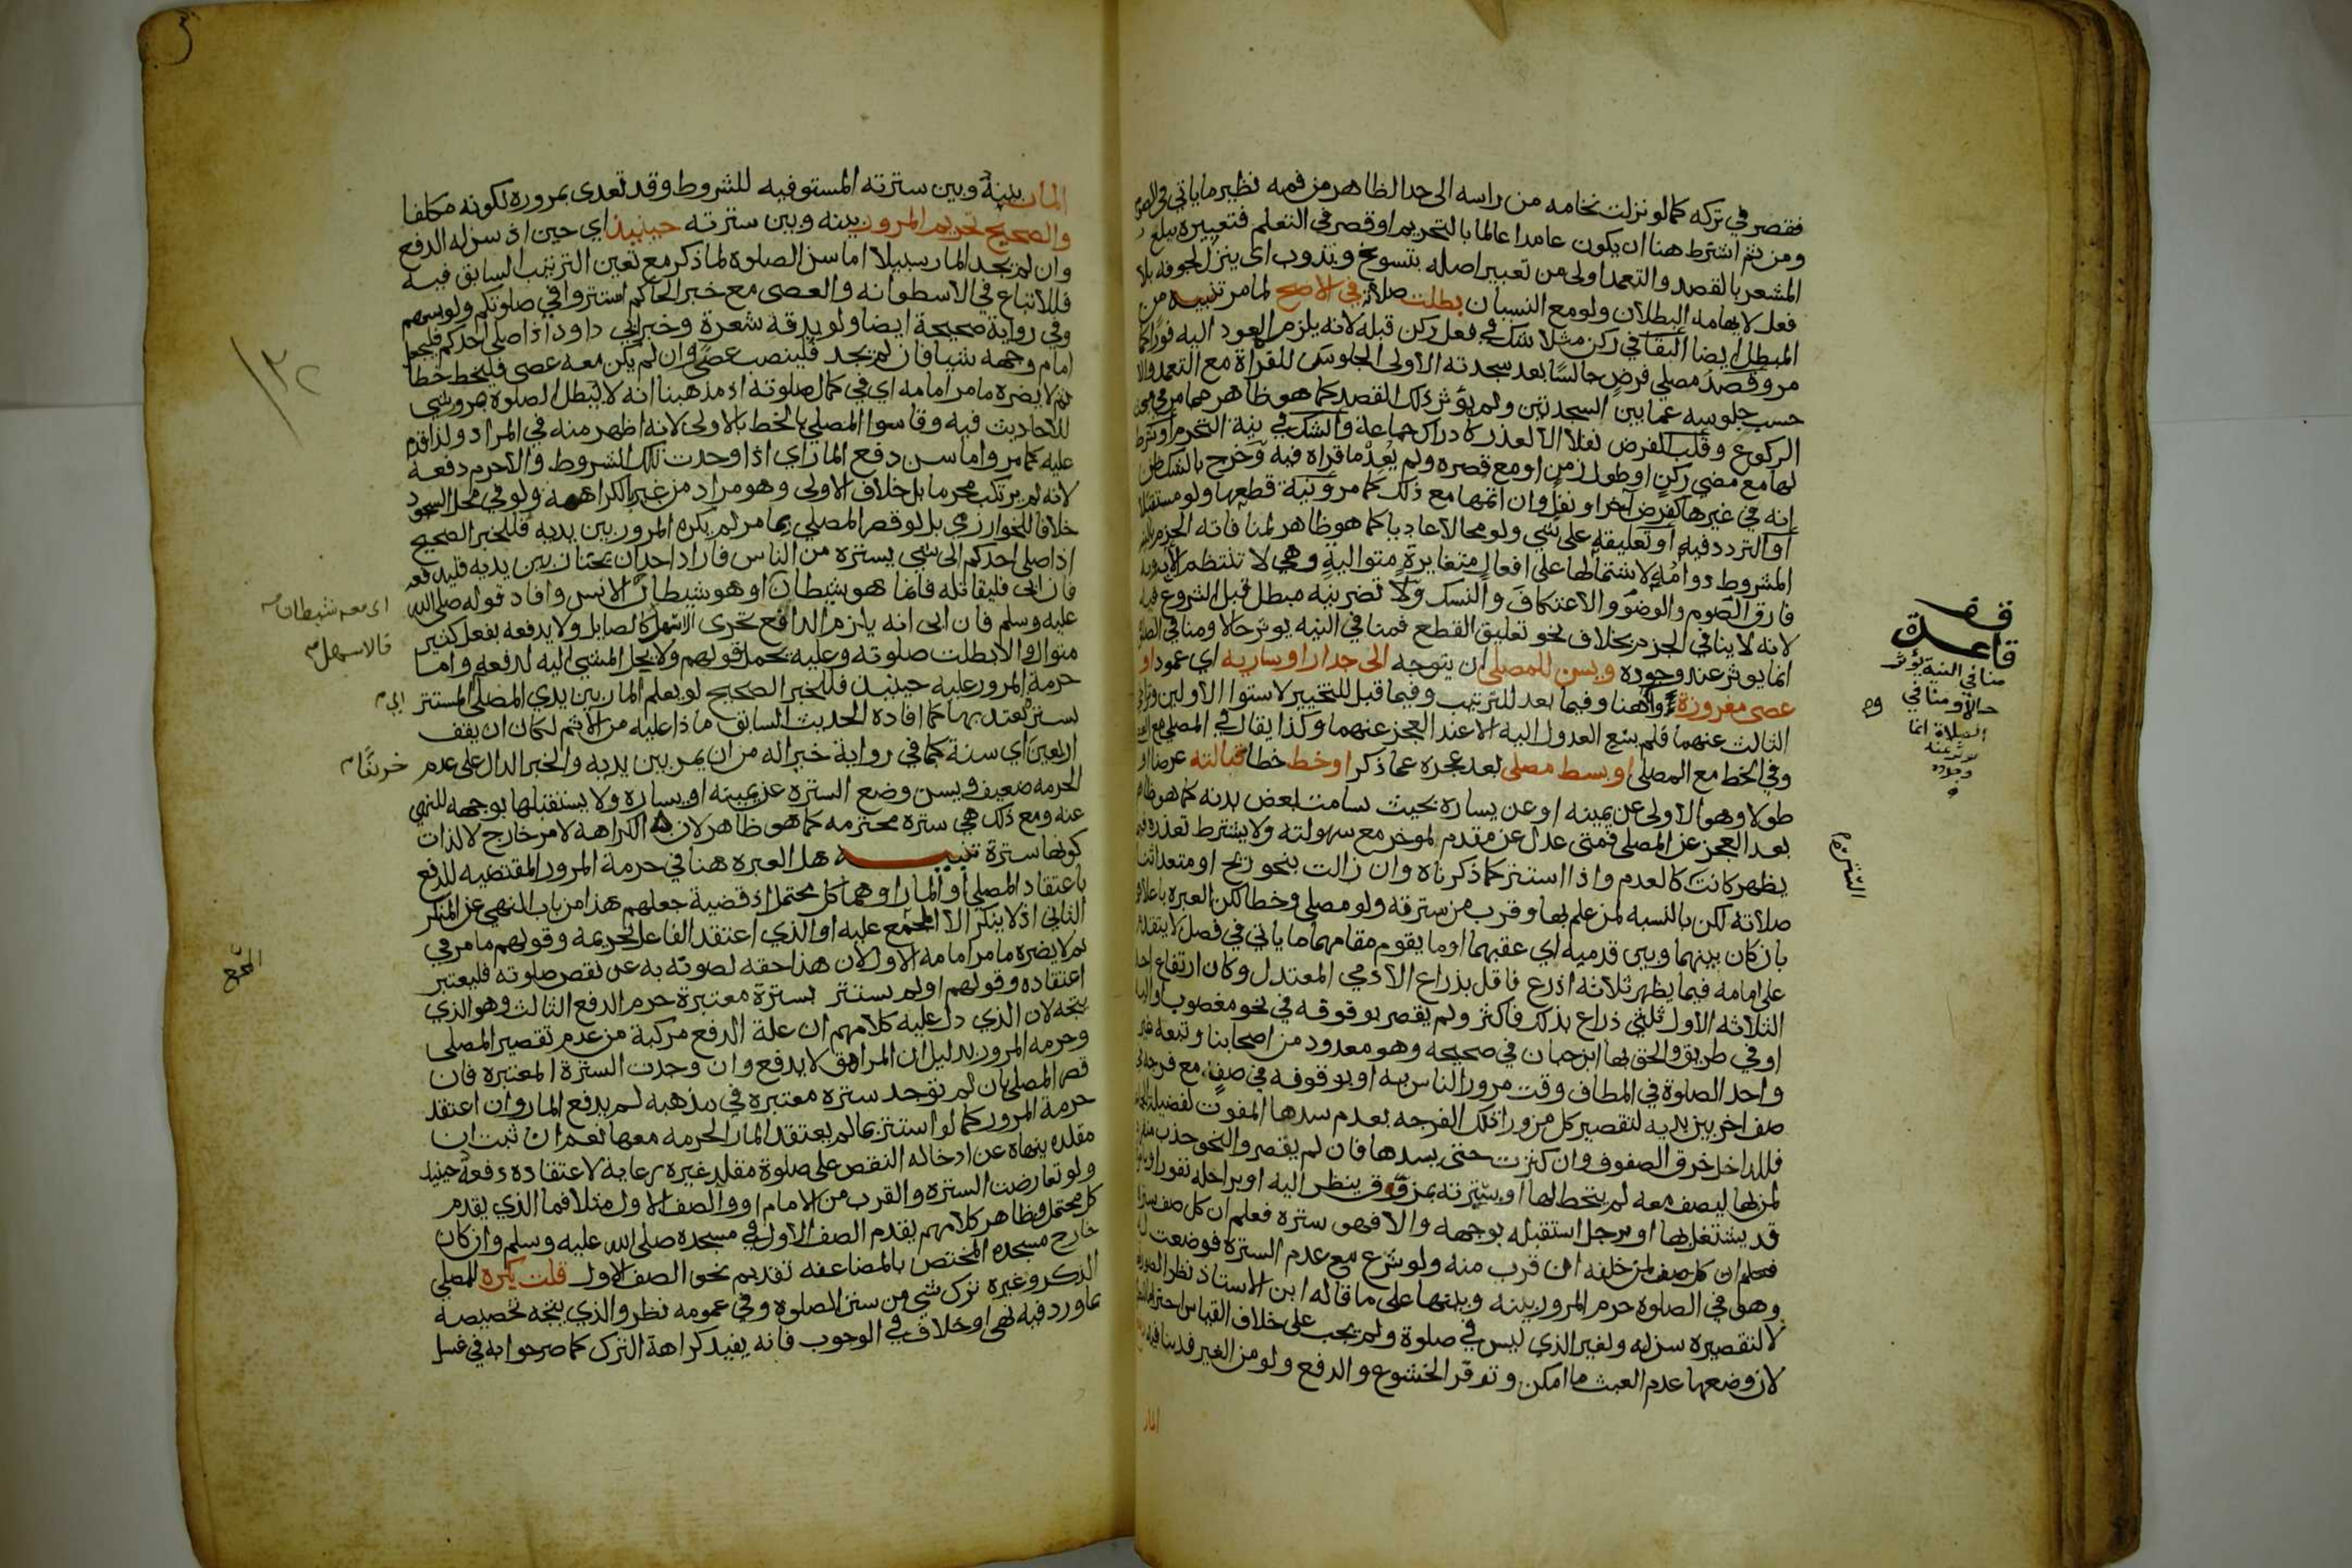 فقصر في تركه كما لو نزلت نخامه من راسه الى حد الظاهر من فمه نظير ما ياتي في الصوم
ومن ثم اشترط هنا ان يكون عامدا عالما بالتحريم او قصر في التعلم فتعبيره ببلع
المشعر بالقصد والتعمد اولى من تعبير اصله بتسوغ وتذوب اى ينزل لجوفه بلا
فعل لايهامه البطلان ولو مع النسيان بطلت صلاته في الاصح لما مر تنبيه من
المبطل ايضا البقا في ركن مثلا شك في فعل ركن قبله لانه يلزمه العود اليه فورا كما
مر وقصد مصلي فرض جالسا بعد سجدته الاولى الجلوس للقراة مع التعمد والا
حسب جلوسه عما بين السجدتين ولم يؤثر ذلك القصد كما هو ظاهر مما مر في هوي
الركوع وقلب الفرض نفلا الا لعذر كادراك جماعة والشك في نية التحرم او شرط
لها مع مضي ركن او طول زمن او مع قصره ولم يعد ما قراه فيه وخرج بالشك ظن
انه في غيرها كفرض آخر او نفل وان اتمها مع ذلك كما مر ونية قطعها ولو مستقبلا
او التردد فيه او تعليقه على شي ولو محالا عاديا كما هو ظاهر لمنافاته الجزم
المشروط دوامه لاشتمالها على افعال متغايرة متوالية وهي لا تنتظم الا به وبه
فارق الصوم والوضو والاعتكاف والنسك ولا تضر نية مبطل قبل الشروع فيه
لانه لا ينافي الجزم بخلاف نحو تعليق القطع فمنافي النيه يوثر حالا ومنافي الصلاة
انما يوثر عند وجوده ويسن للمصلي ان يتوجه الى جدار او ساريه اي عمود او
عصى مغروزة واو هنا وفيما بعد للترتيب وفيما قبل للتخيير لاستوا الاولين
الثالث عنهما فلم يسغ العدول اليه الا عند العجز عنهما وكذا يقال في المصلى مع العصى
وفي الخط مع المصلى او بسط مصلى بعد عجزه عما ذكر او خط خطا قبالته عرضا او
طولا وهو الاولى عن يمينه او عن يساره بحيث يسامت بعض بدنه كما هو ظاهر
بعد العجز عن المصلى فمتى عدل عن متقدم لموخر مع سهولته ولا يشترط تعذره فيما
يظهر كانت كالعدم واذا استتر كما ذكرناه وان زالت بنحو ريح او متعد اثنا
صلاته لكن بالنسبه لمن علم بها وقرب من سترته ولو مصلى وخطا لكن العبره باعلاهما
بان كان بينهما وبين قدميه اي عقبهما او ما يقوم مقامهما ما ياتي في فصل لا يتقدم
على امامه فيما يظهر ثلاثه اذرع فاقل بذراع الآدمي المعتدل وكان ارتفاع احد
الثلاثه الاول ثلثي ذراع بذلك فاكثر ولم يقصر بوقوفه في نحو مغصوب
او في طريق والحق بها ابن حبان في صحيحه وهو معدود من اصحابنا وتبعه غير
واحد الصلوة في المطاف وقت مرور الناس به او بوقوفه في صف مع فرجه في
صف اخر بين يديه لتقصير كل من ورا تلك الفرجه بعدم سدها المفوت لفضيلة
فللداخل خرق الصفوف وان كثرت حتى يسدها فان لم يقصروا لنحو جذب
لمن بها ليصف معه لم يتخط لها او بسترته بمزوق ينظر اليه او براحله نفور
قد يشتغل بها او برجل استقبله بوجهه والا فهو سترة فعلم ان كل صف ستره
فعلم ان كل صف لمن خلفه ان قرب منه ولو شرع مع عدم السترة فوضعت له
وهو في الصلوه حرم المرور بينه وبينها على ما قاله ابن الاستاذ نظر الصورة
لا لتقصيره سن له ولغير الذي ليس في صلوة ولم يجب على خلاف القياس
لان وضعها عدم العبث ما امكن وتوفر الخشوع والدفع ولو من الغير
المار
قف
قاعدة
منافي النية يؤثر
حالا ومنافي
الصلاة انما
يوثر عند
وجوده
المار بينه وبين سترته المستوفيه للشروط وقد تعدى بمروره لكونه مكلفا
والصحيح تحريم المرور بينه وبين سترته حينيذ اي حين اذ سن له الدفع
وان لم يجد المار سبيلا اما سن الصلوه لما ذكر مع تعين الترتيب السابق فيه
فللاتباع في الاسطوانه والعصى مع خبر الحاكم استتروا في صلوتكم ولو بسهم
وفي رواية صحيحة ايضا ولو بدقه شعرة وخبر ابي داود اذا صلى احدكم فليجعل
امام وجهه شيا فان لم يجد فلينصب عصى وان لم يكن معه عصى فليخط خطا
ثم لا يضره ما مر امامه اي في كمال صلوته اذ مذهبنا انه لا يبطل الصلوة مرور شي
للاحاديث فيه وقاسوا المصلى بالخط بالاولى لانه اظهر منه في المراد ولذا قدم
عليه كما مر واما سن دفع المار اي اذا وجدت تلك الشروط والا حرم دفعه
لانه لم يرتكب محرما بل خلاف الاولى وهو مراد من غير بالكراهة ولو في محل السجود
خلافا للخوارزمي بل لو قصر المصلي بما مر لم يكره المرور بين يديه فللخبر الصحيح
اذا صلى احدكم الى شي يستره من الناس فاراد احد ان يجتاز بين يديه فليدفعه
فان ابى فليقاتله فانما هو شيطان او هو شيطان الانس وافاد قوله صلى الله
عليه وسلم فان ابى انه يلزم الدافع تحرى الاسهل كالصايل ولا يدفعه بفعل كثير
متوال والا بطلت صلوته وعليه يحمل قولهم ولا يحل المشي اليه لدفعه واما
حرمة المرور عليه حينيذ فللخبر الصحيح لو يعلم المار بين يدي المصلي المستتر
بستر يعتد بها كما افاده الحديث السابق ماذا عليه من الاثم لكان ان يقف
اربعين اي سنة كما في رواية خير اله من ان يمر بين يديه والخبر الدال على عدم
الحرمه ضعيف ويسن وضع السترة عن يمينه او يساره ولا يستقبلها بوجهه للنهي
عنه ومع ذلك هي سترة محترمه كما هو ظاهر لان الكراهة لامر خارج لا لذات
كونها سترة تنبيه هل العبره هنا في حرمة المرور المقتضيه للدفع
باعتقاد المصلي او المار او هما كل محتمل اذ قضية جعلهم هذا من باب النهي عن المنكر
الثاني اذ لا ينكر الا المجمع عليه او الذي اعتقد الفاعل تحريمه وقولهم ما مر في
ثم لا يضره ما مر امامه الاول لان هذا حقه لصونه به عن نقص صلوته فليعتبر
اعتقاده وقولهم او لم يستتر بسترة معتبرة حرم الدفع الثالث وهو الذي
يتجه لان الذي دل عليه كلامهم ان علة الدفع مركبة من عدم تقصير المصلي
وحرمه المرور بدليل ان المراهق لا يدفع وان وجدت السترة المعتبره فان
قصر المصلى بان لم توجد ستره معتبره في مذهبه لم يدفع المار وان اعتقد
حرمة المرور كما لو استتر بما لم يعتقد المار الحرمه معها نعم ان ثبت ان
مقلده ينهاه عن ادخاله النقص على صلوة مقلد غيره رعاية لاعتقاده دفعه حينيذ
ولو تعارضت السترة والقرب من الامام او والصف الاول مثلا فما الذي يقدم
كل محتمل وظاهر كلامهم يقدم الصف الاول في مسجده صلى الله عليه وسلم وان كان
خارج مسجده المختص بالمضاعفه تقديم نحو الصف الاول قلت يكره للمصلي
الذكر وغيره ترك شي من سنن الصلوه وفي عمومه نظر والذي يتجه تخصيصه
بما ورد فيه نهي او خلاف في الوجوب فانه يفيد كراهة الترك كما صرحوا به في غسل
اى معه شيطان
فالاسهل
خريفا
المجمع
١٣